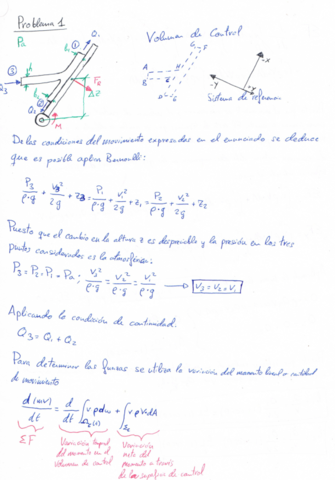 Problema 1
Pa
Q1
Volumen de Control
h1
G
F
1
3
A
H
h
FR
B
E
-x
Q3
h2
ΔZ
C
D
-y
2
Q2
M
Sistema de referencia
De las condiciones del movimiento expresadas en el enunciado se deduce
que es posible aplicar Bernoulli:
P3/ρ·g + V3²/2g + Z3 = P1/ρ·g + V1²/2g + Z1 = P2/ρ·g + V2²/2g + Z2
Puesto que el cambio en la altura z es despreciable y la presión en los tres
puntos considerados es la atmosférica:
P3 = P2 = P1 = Pa ; V3²/ρ·g = V2²/ρ·g = V1²/ρ·g → V3 = V2 = V1
Aplicando la condición de continuidad.
Q3 = Q1 + Q2
Para determinar las fuerzas se utiliza la variación del momento lineal o cantidad
de movimiento
d(mv)/dt = d/dt ∫ v ρ dω + ∫ v ρ V dA
ΣF
Variación temporal
del momento en el
volumen de control
Variación
neta del
momento a través
de la superficie de control